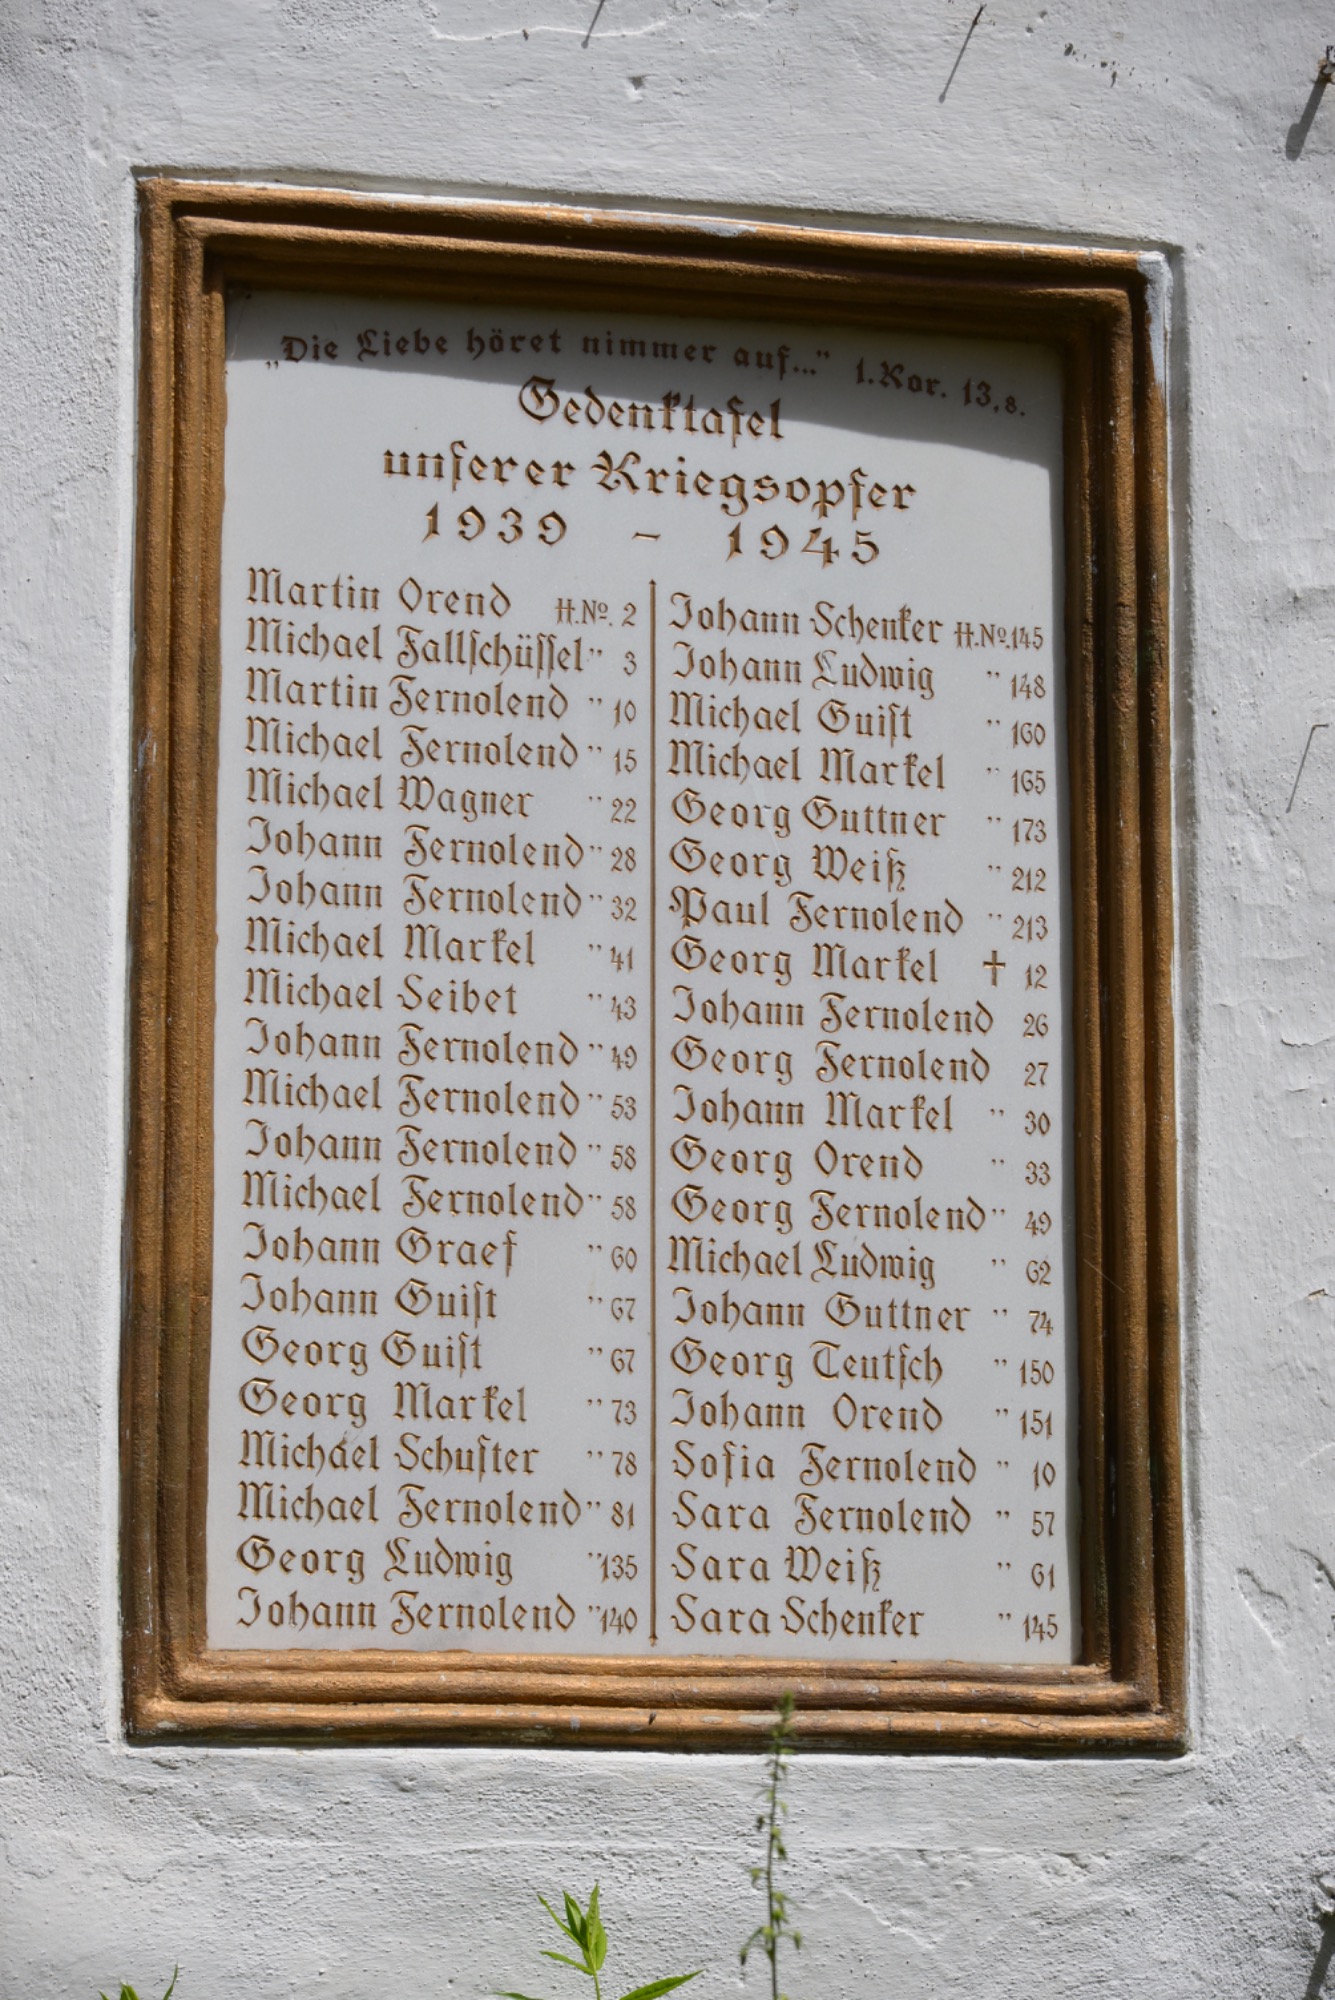 „Die Liebe höret nimmer auf..." 1.Kor. 13,8.
Gedenktafel
unserer Kriegsopfer
1939 - 1945
Martin Orend H.No. 2
Michael Fallschüssel " 3
Martin Fernolend " 10
Michael Fernolend " 15
Michael Wagner " 22
Johann Fernolend " 28
Johann Fernolend " 32
Michael Markel " 41
Michael Seibet " 43
Johann Fernolend " 49
Michael Fernolend " 53
Johann Fernolend " 58
Michael Fernolend " 58
Johann Graef " 60
Johann Guist " 67
Georg Guist " 67
Georg Markel " 73
Michael Schuster " 78
Michael Fernolend " 81
Georg Ludwig " 135
Johann Fernolend " 140
Johann Schenker H.No. 145
Johann Ludwig " 148
Michael Guist " 160
Michael Markel " 165
Georg Guttner " 173
Georg Weiß " 212
Paul Fernolend " 213
Georg Markel † 12
Johann Fernolend 26
Georg Fernolend 27
Johann Markel " 30
Georg Orend " 33
Georg Fernolend " 49
Michael Ludwig " 62
Johann Guttner " 74
Georg Teutsch " 150
Johann Orend " 151
Sofia Fernolend " 10
Sara Fernolend " 57
Sara Weiß " 61
Sara Schenker " 145